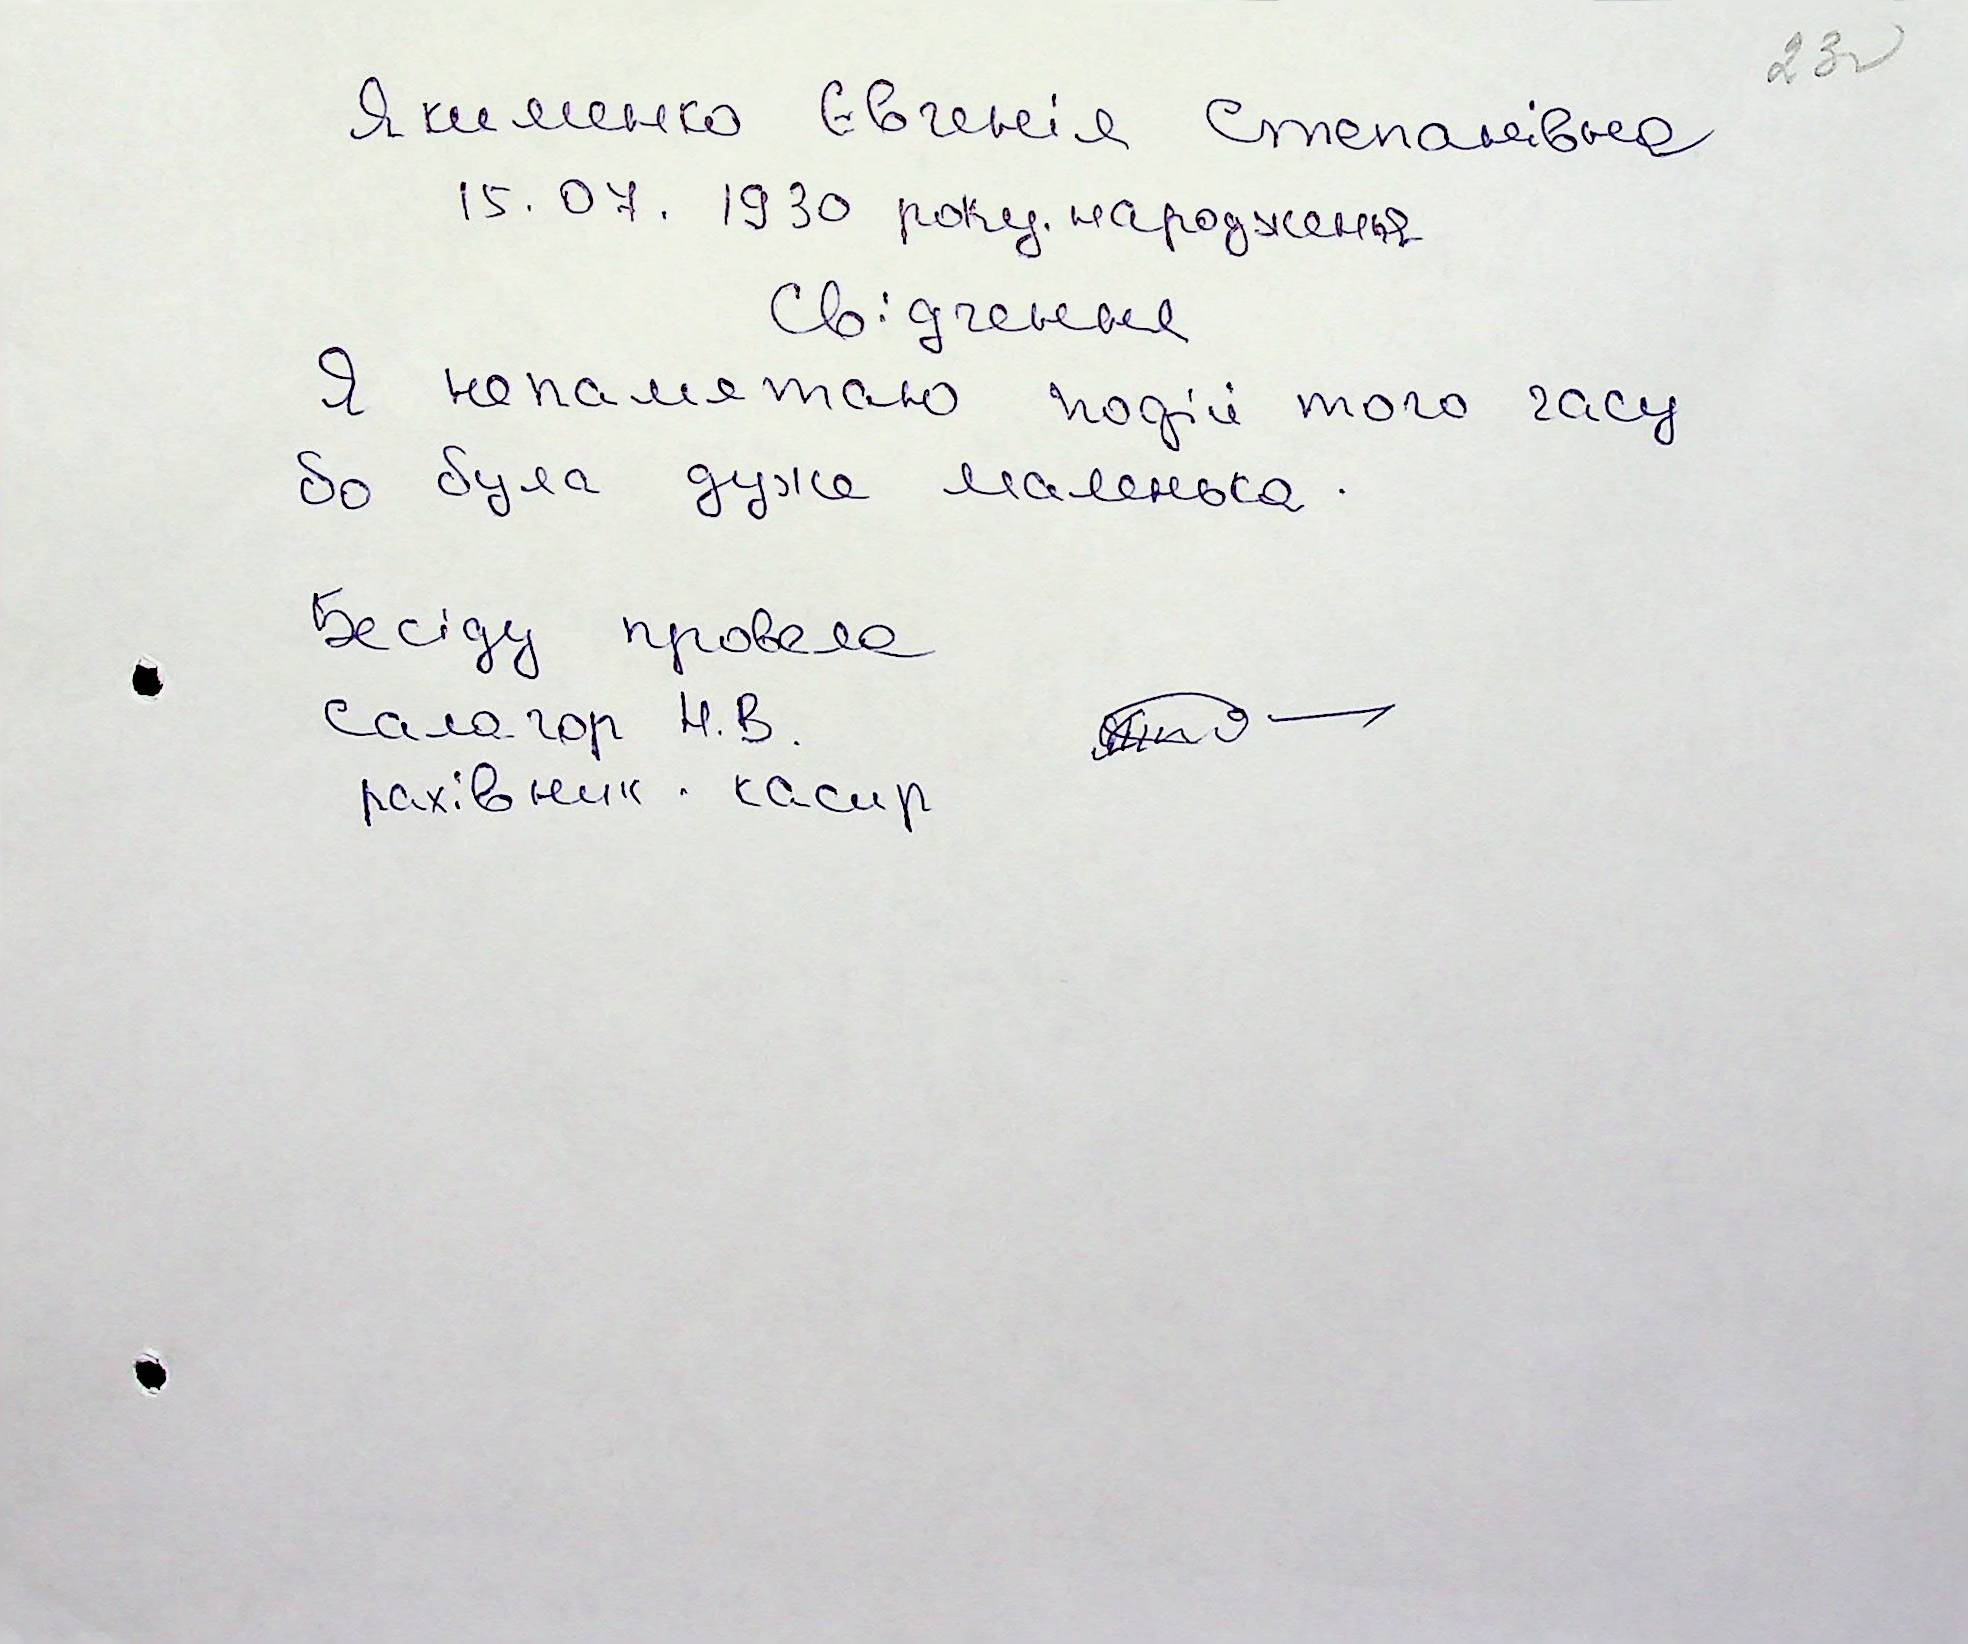 23
Якименко Євгенія Степанівна
15.07.1930 року. народження
Свідчення
Я непамятаю подій того часу
бо була дуже маленька.
Бесіду провела
Салагор Н.В.
рахівник. касир